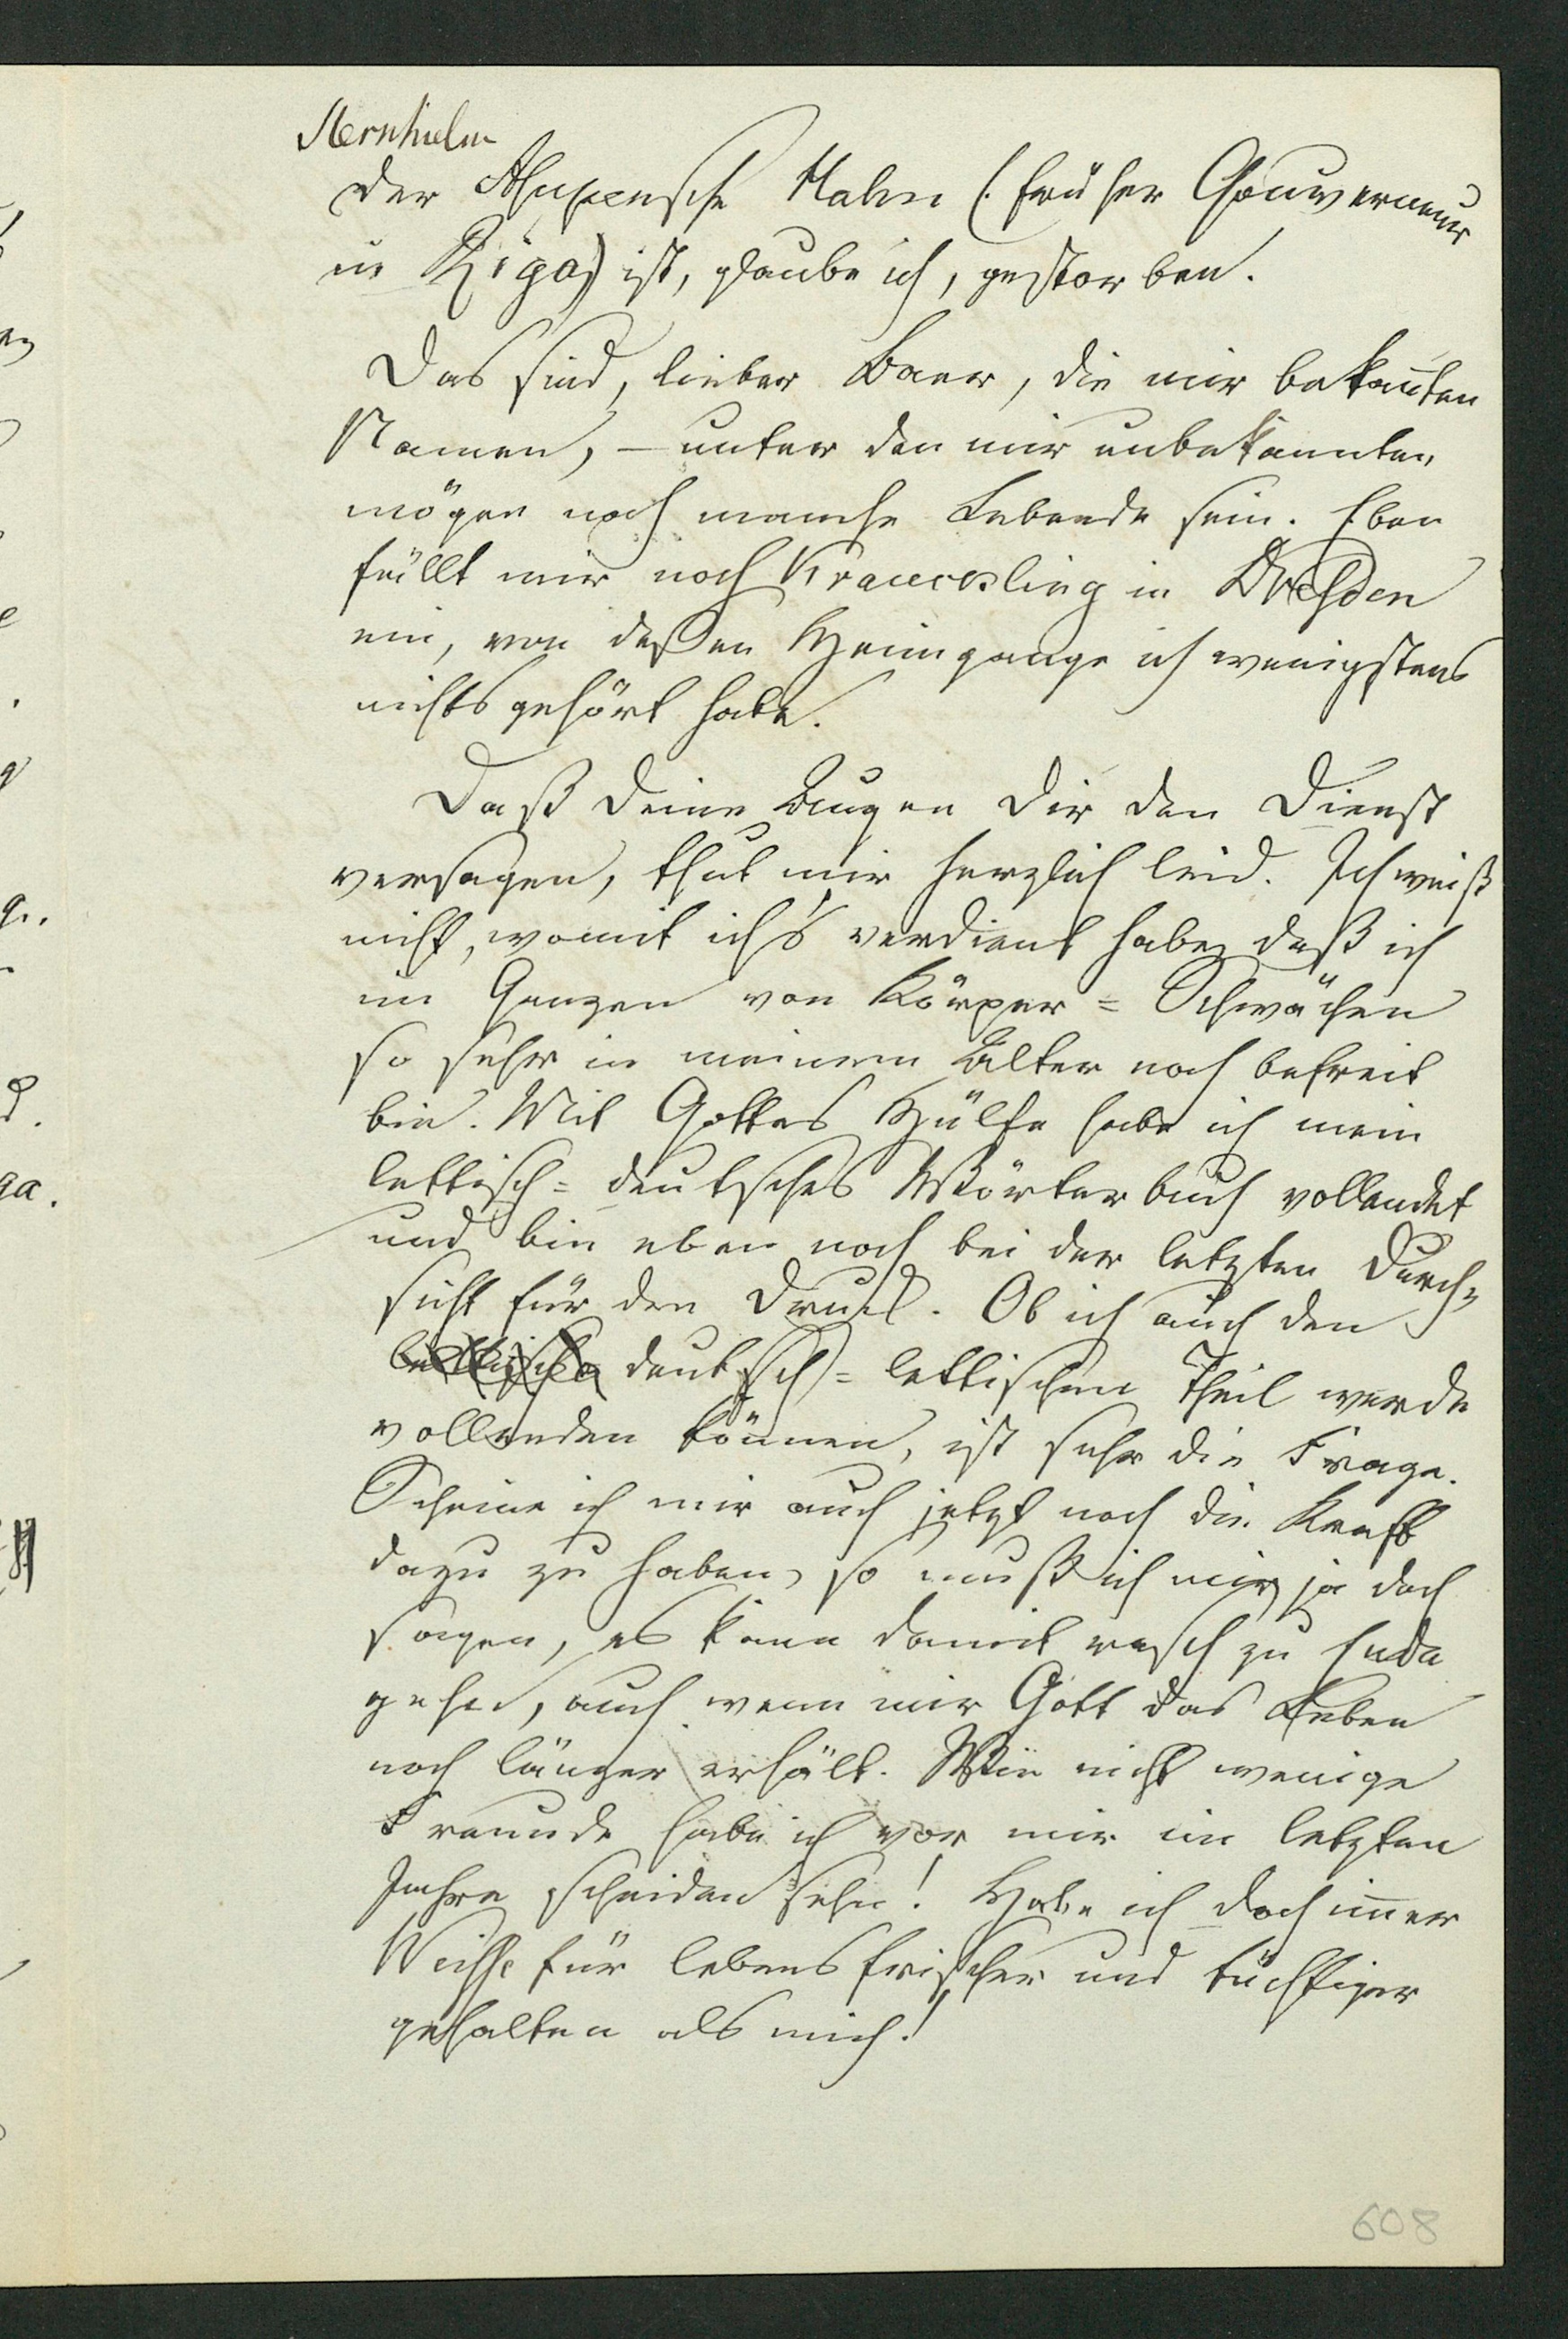 Sternhielm
der Asuppensche Hahn (: früher Gouverneur
in Riga) ist, glaube ich, gestorben.
Das sind, lieber Baer, die mir bekañten
Namen, – unter den mir unbekannten
mögen noch manche Lebende sein. Eben
fällt mir noch Kraeuckling in Dresden
ein, von deßen Heimgange ich wenigstens
nichts gehört habe.
Daß Deine Augen Dir den Dienst
versagen, thut mir herzlich leid. Ich weiß
nicht, womit ich's verdient habe, daß ich
im Ganzen von Körper=Schwächen
so sehr in meinem Alter noch befreit
bin. Mit Gottes Hülfe habe ich mein
lettisch=deutsches Wörterbuch vollendet
und bin eben noch bei der letzten Durch=
sicht für den Druck. Ob ich auch den
deutsch=lettischen Theil werde
vollenden können, ist sehr die Frage.
Scheine ich mir auch jetzt noch die Kraft
dazu zu haben, so muß ich mir ja doch
sagen, es kann damit rasch zu Ende
gehen, auch wenn mir Gott das Leben
noch länger erhält. Wie nicht wenige
Freunde habe ich vor mir im letzten
Jahre scheiden sehn! Habe ich doch im̅er
Weisse für lebensfrischer und tüchtiger
gehalten als mich!
608